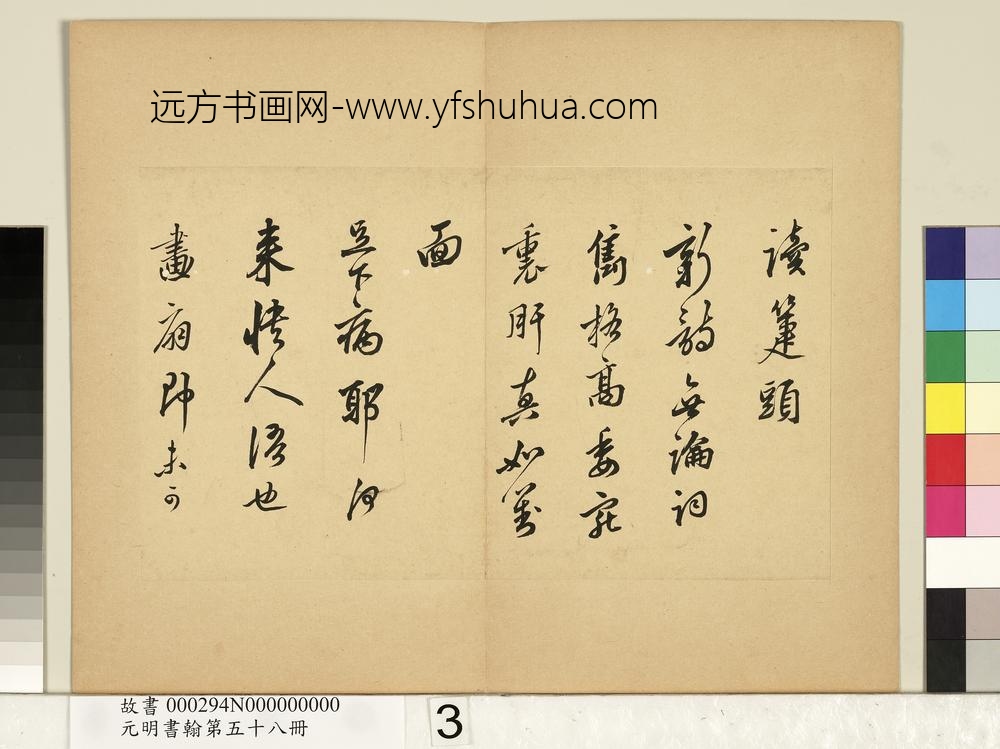 远方书画网-www.yfshuhua.com
讀箑頭
新詩無論詞
雋格高委宛
裏肝真如萬
面
足下病耶何
來快人語也
畫扇即未可
故書 000294N000000000
元明書翰第五十八冊
3